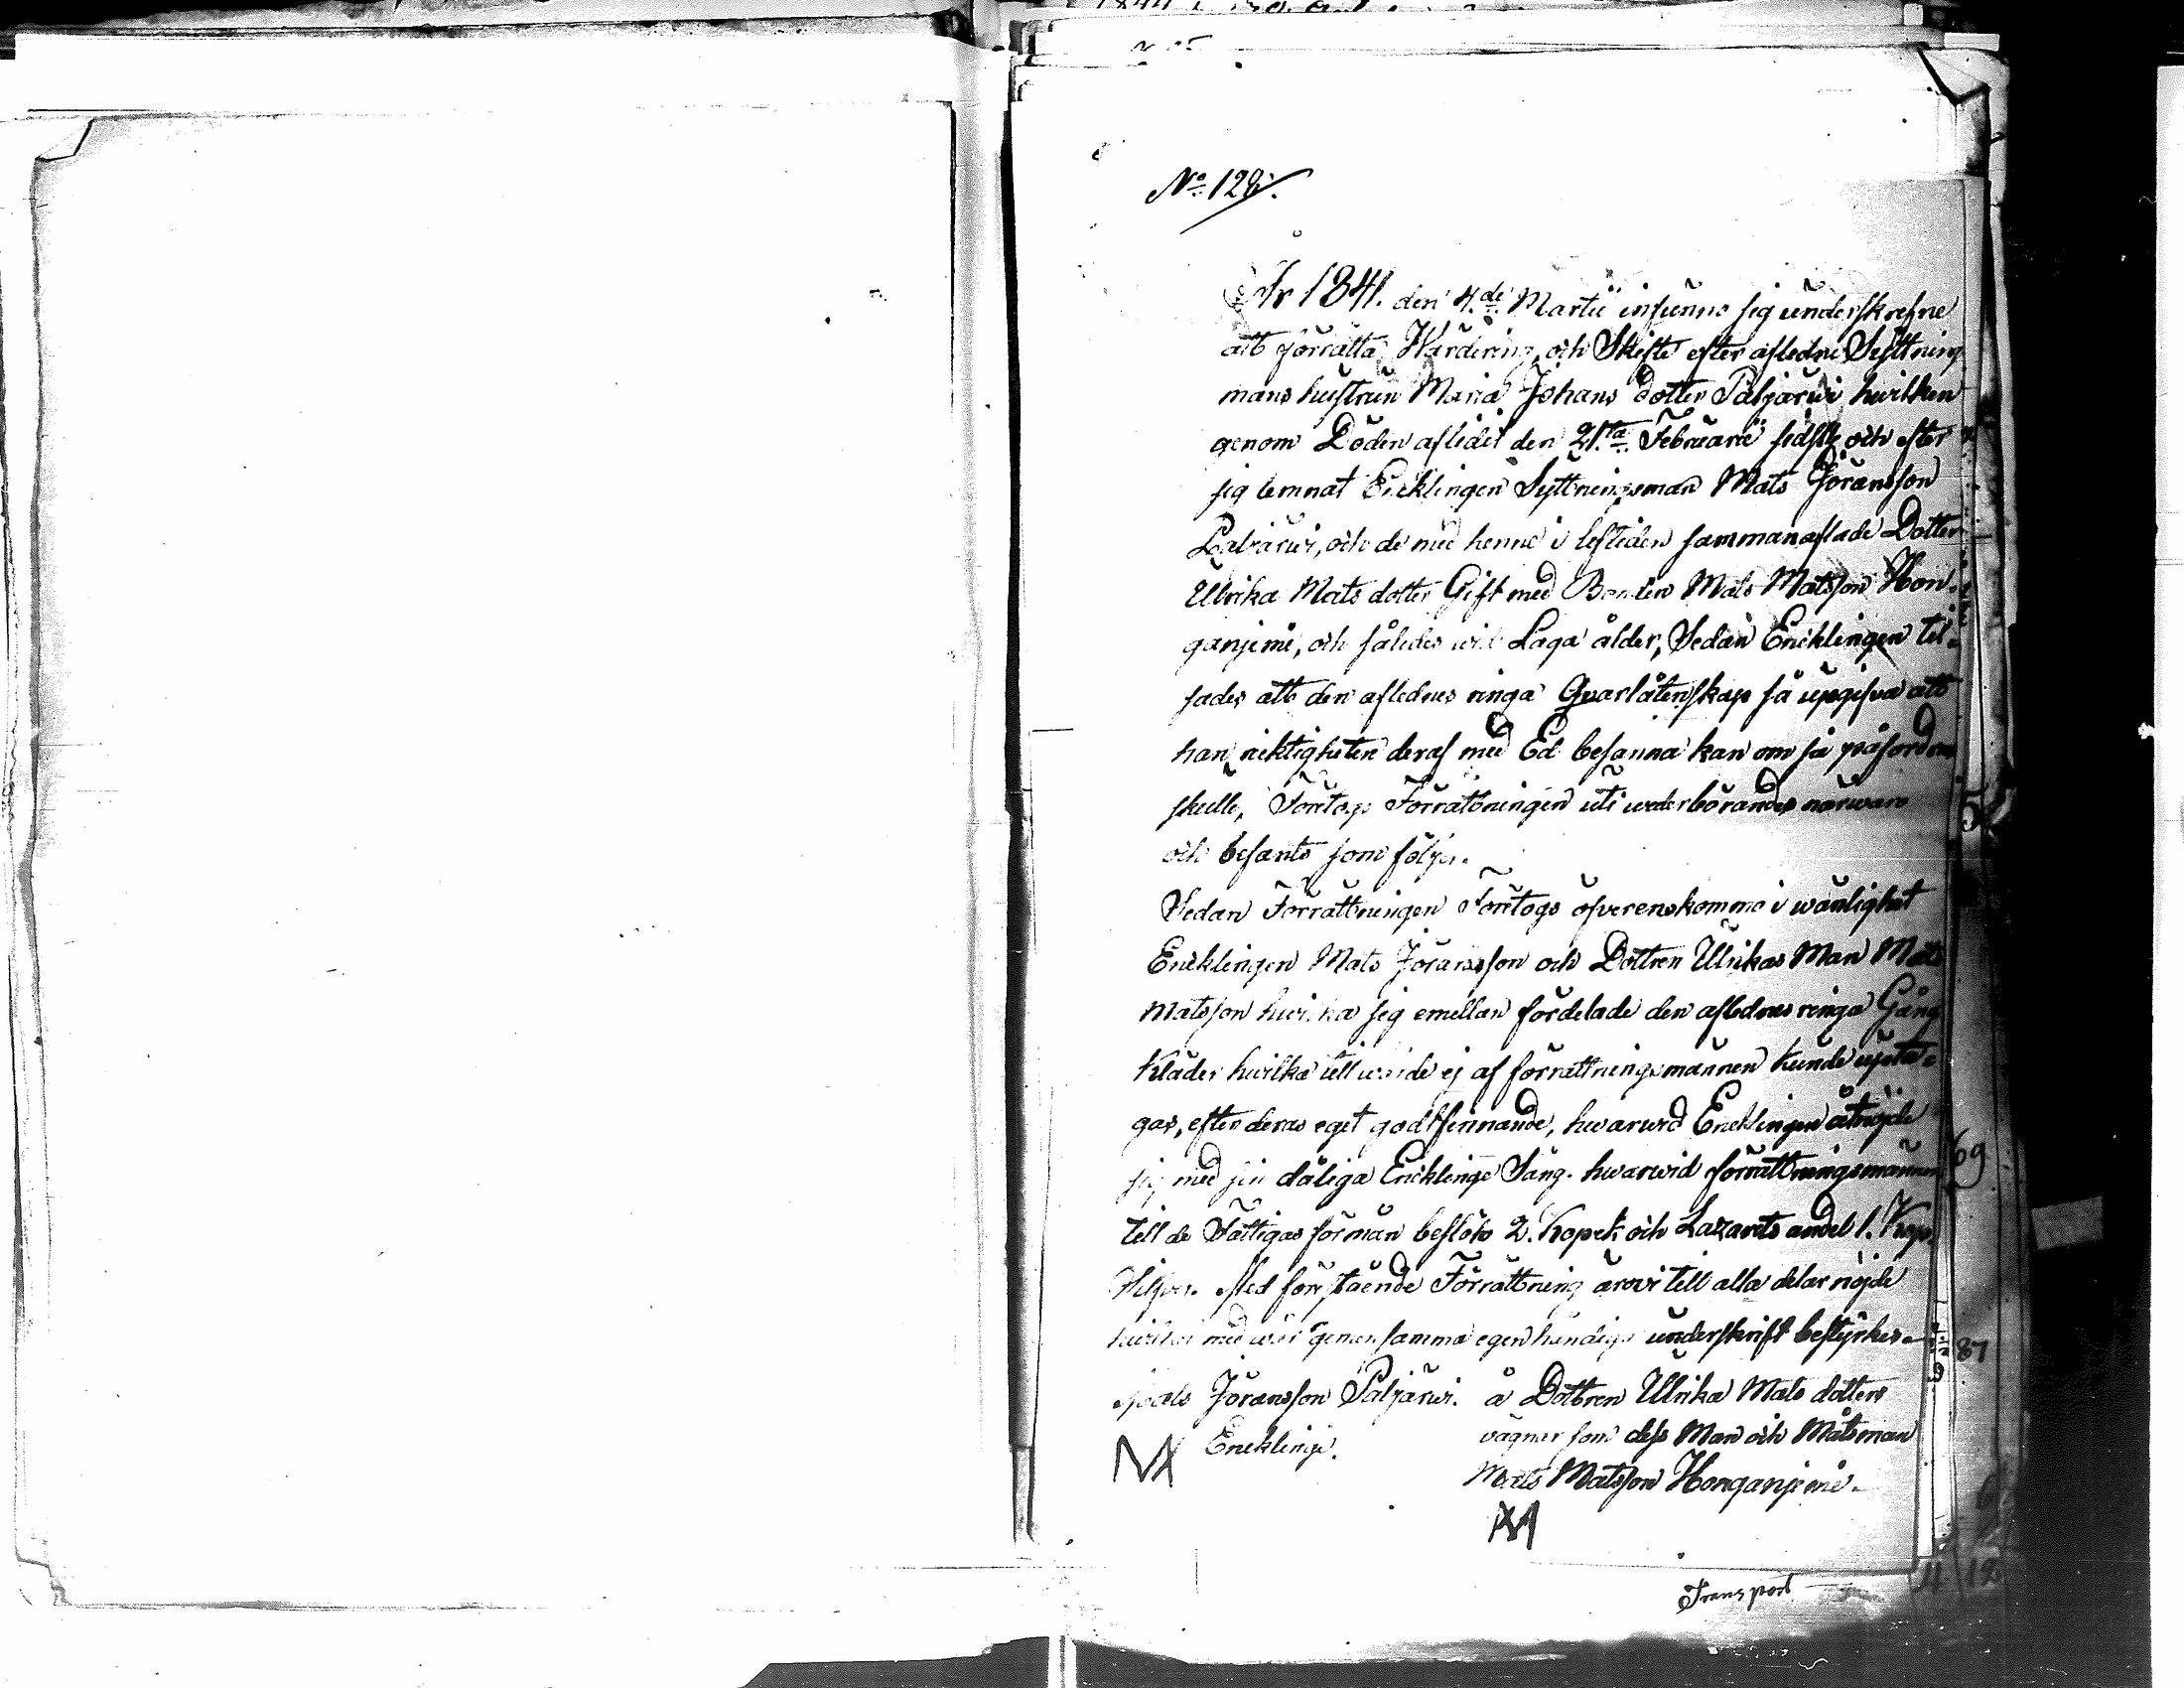 No 128.
År 1841. den 4de Martii infunno sig underskrefne
att förrätta Wärdering och Skifte efter aflednе Syttning
mans hustrun Maria Johans dotter Paljärwi hwilken
genom Döden aflidit den 21sta Februarii sidstl och efter
sig lemnat Encklingen Syttningsman Mats Jöransson
Paljärwi, och de med henne i lifstiden sammanaflade Dotter
Ullrika Mats dotter Gift med Bonden Mats Matsson Hon-
ganjemi, och således wid Laga ålder, Sedan Encklingen til-
sades att den aflednes ringa Qvarlåtenskap så upgifva att
han riktigheten deraf med Ed besanna kan om så påfordras
skulle, Företogs Förrättningen uti wederbörandes närwaro
och befants som följer.
Sedan Förrättningen Företogs öfverenskommo i wänlighet
Encklingen Mats Jöransson och Dottren Ullrikas Man Mats
Matsson hwilka sig emellan fördelade den aflednes ringa Gång
kläder hwilka till wärde ej af förrättningsmännen kunde upta-
gas, efter deras eget godtfinnande, hwarwid Encklingen åtnöjde
sig med sin dåliga Encklinge Säng. hwarwid förrättningsmännen
till de Fattigas förmån beslöto 2. Kopek och Lazarets andel 1. Kop.
Silfver. Med förestående Förrättning äro vi till alla delar nöjde
hwilket med wår gemensamma egenhändiga underskrift bestyrkes.
Mats Jöransson Paljärwi. å Dottren Ullrika Mats dotters
Encklinge. vägnar som dess Man och Målsman
Mats Matsson Honganjemi.
Transport